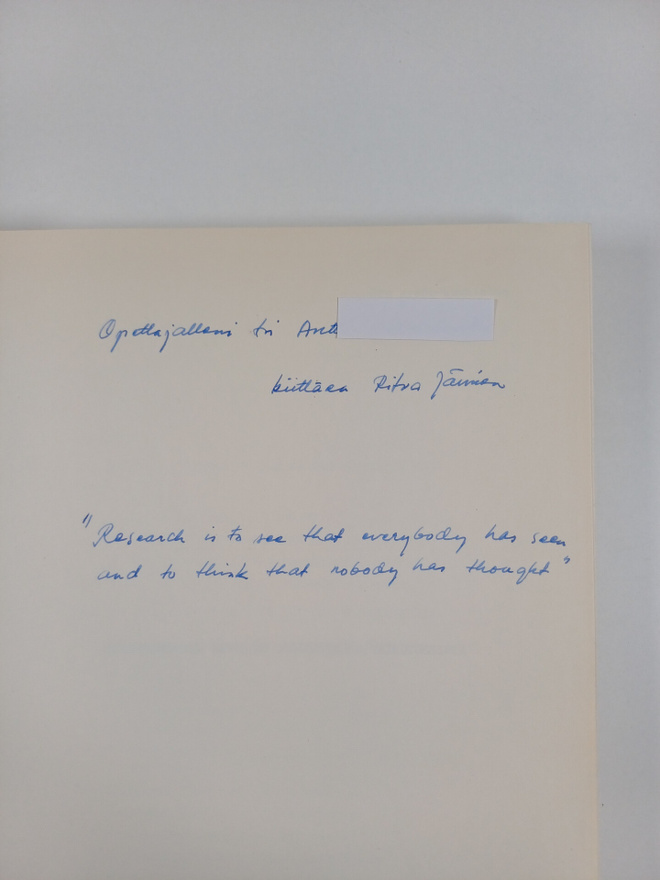 Opettajalleni tri
kiittäen Ritva Järvinen
"Research is to see that everybody has seen
and to think that nobody has thought"